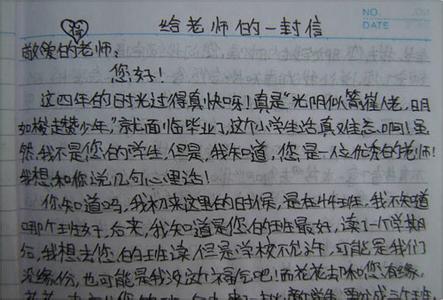 NO.
DATE
给老师的一封信
敬爱的老师:
您好!
这四年的时光过得真快呀!真是“光阴似箭催人老,日月
如梭趱少年,”就面临毕业了,这个小学生活真难忘啊!虽
然,我不是您的学生,但是,我知道,您是一位优秀的老师!
我想和你说几句心里话!
你知道吗,我初来这里的时候,是在4年班,我不知道
哪个班好,后来,我知道是您的班最好,读了一个学期
后,我想去您的班读,但是学校不允许,可能是我们
没缘份,也可能是我没这个福气吧!而花花去你您有缘,